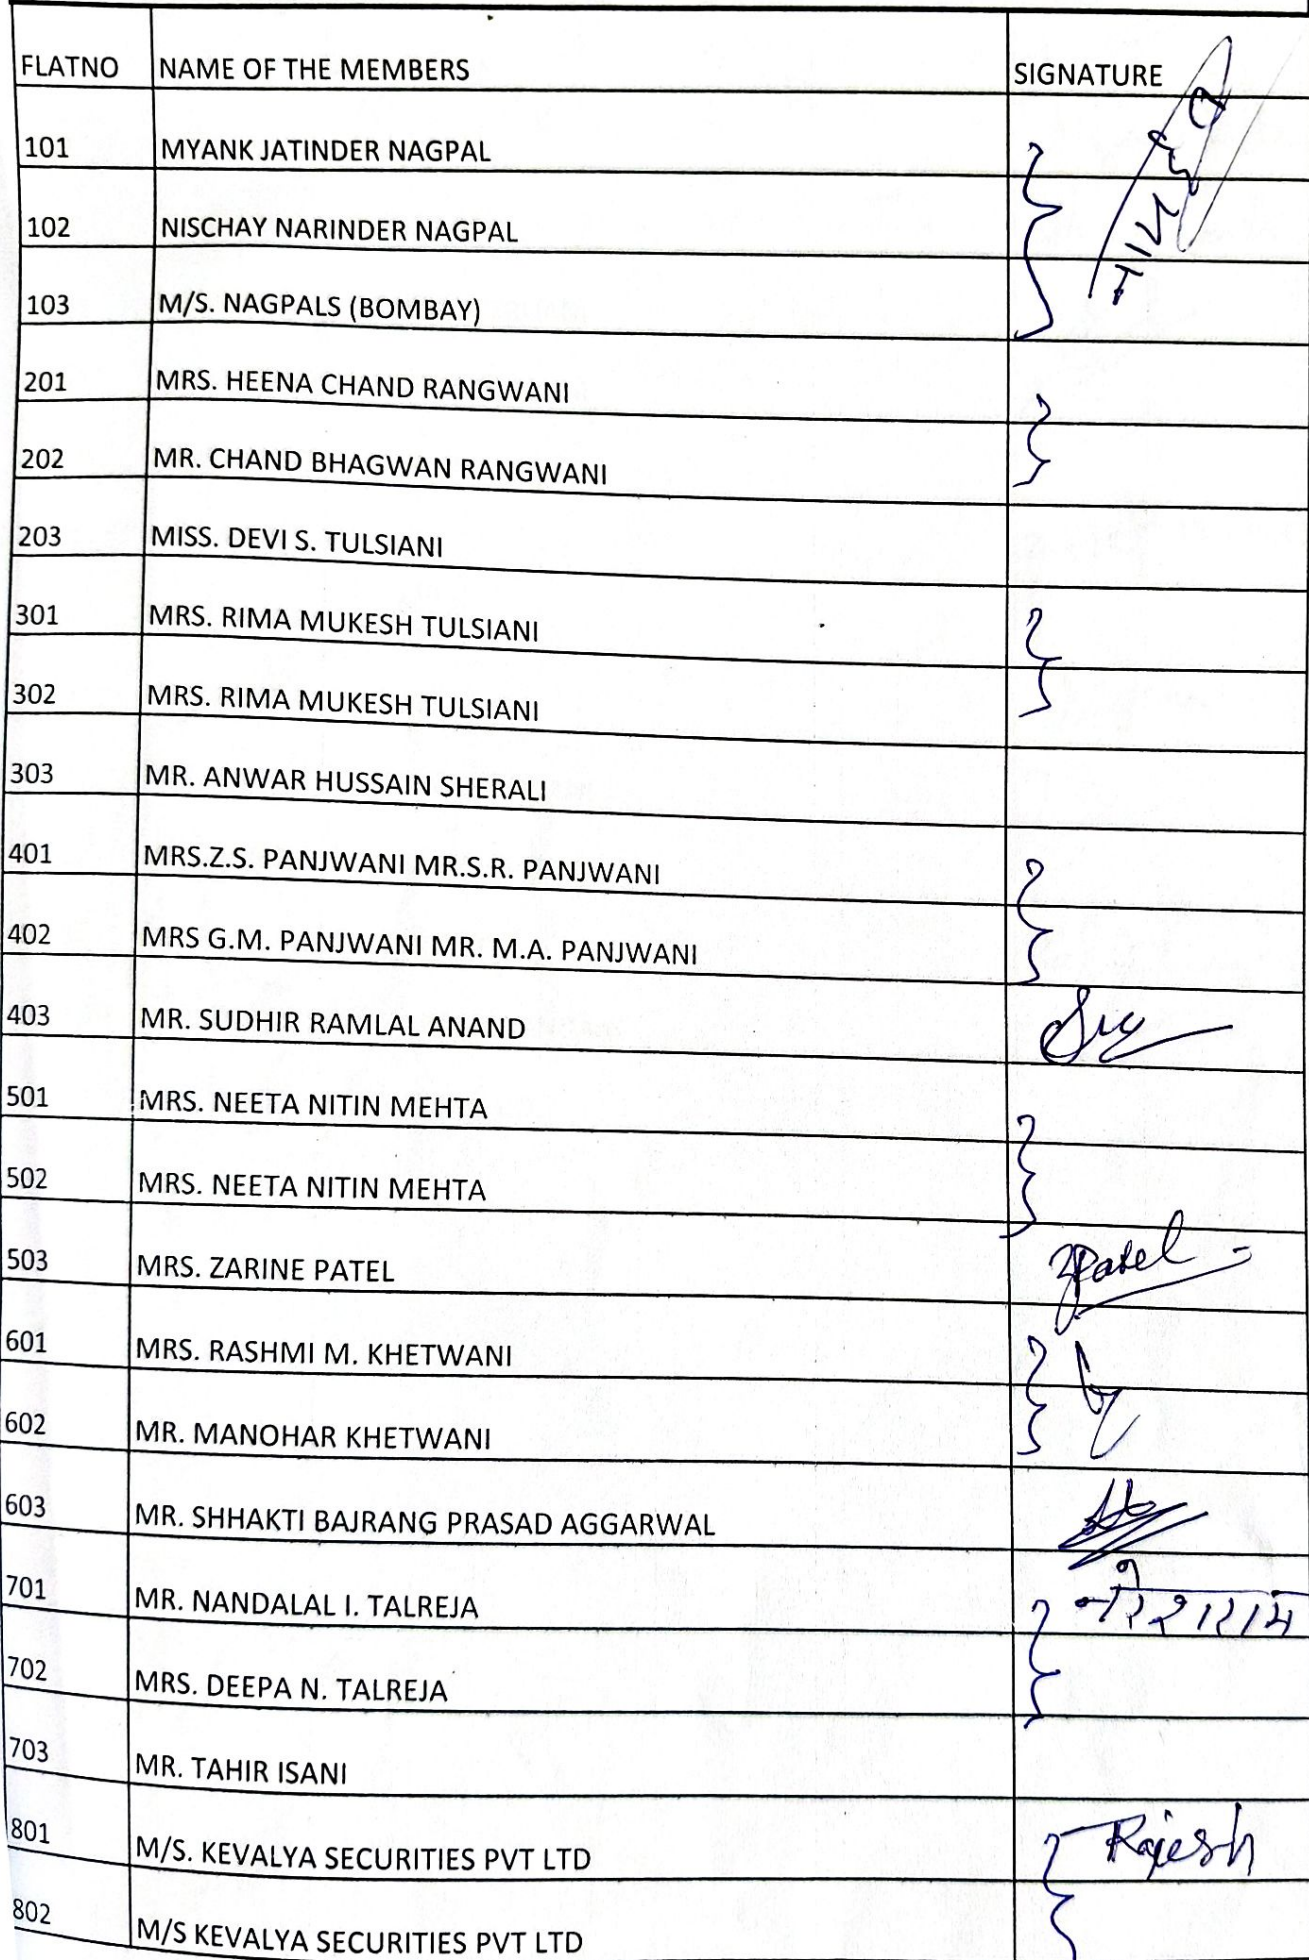 FLATNO NAME OF THE MEMBERS SIGNATURE
101 MYANK JATINDER NAGPAL
102 NISCHAY NARINDER NAGPAL
103 M/S. NAGPALS (BOMBAY)
201 MRS. HEENA CHAND RANGWANI
202 MR. CHAND BHAGWAN RANGWANI
203 MISS. DEVI S. TULSIANI
301 MRS. RIMA MUKESH TULSIANI
302 MRS. RIMA MUKESH TULSIANI
303 MR. ANWAR HUSSAIN SHERALI
401 MRS.Z.S. PANJWANI MR.S.R. PANJWANI
402 MRS G.M. PANJWANI MR. M.A. PANJWANI
403 MR. SUDHIR RAMLAL ANAND
501 MRS. NEETA NITIN MEHTA
502 MRS. NEETA NITIN MEHTA
503 MRS. ZARINE PATEL ZPatel
601 MRS. RASHMI M. KHETWANI
602 MR. MANOHAR KHETWANI
603 MR. SHHAKTI BAJRANG PRASAD AGGARWAL
701 MR. NANDALAL I. TALREJA
702 MRS. DEEPA N. TALREJA
703 MR. TAHIR ISANI
801 M/S. KEVALYA SECURITIES PVT LTD Rajesh
802 M/S KEVALYA SECURITIES PVT LTD